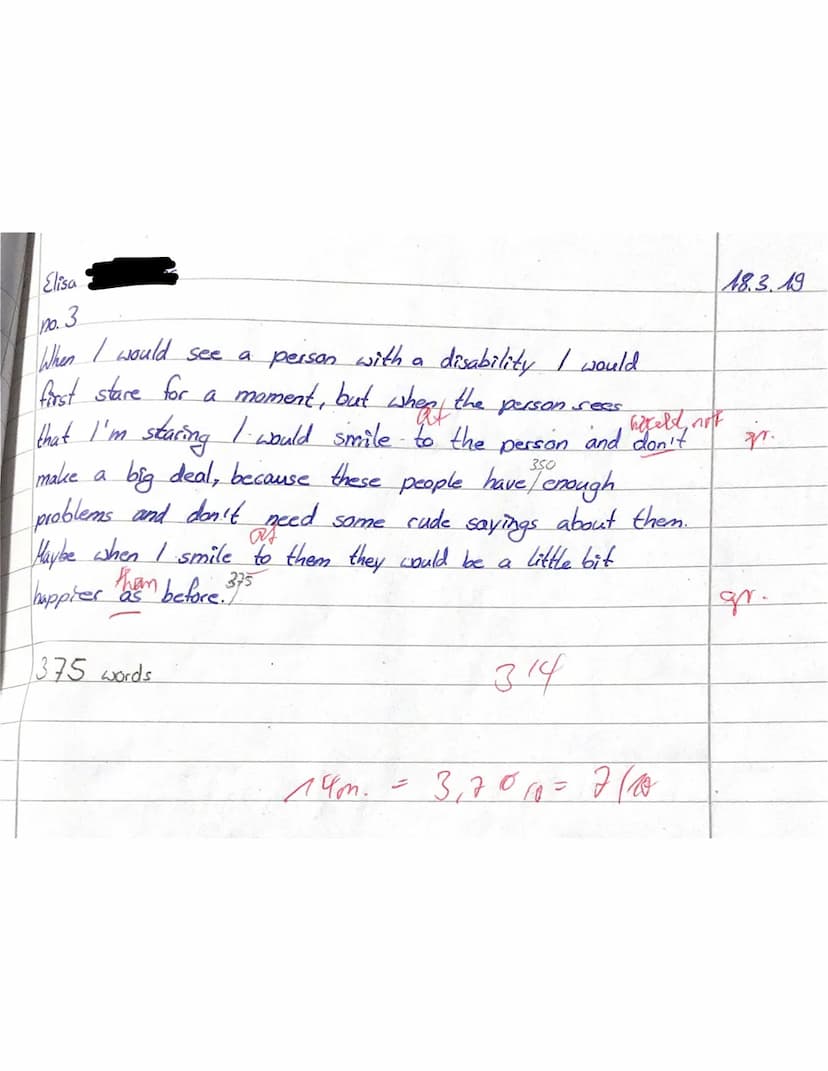 Elisa 18.3.19
no. 3
When I would see a person with a disability I would
first stare for a moment, but when the person sees
at would not
that I'm staring I would smile to the person and don't gr.
350
make a big deal, because these people have/enough
problems and don't need some rude sayings about them.
at
Maybe when I smile to them they would be a little bit
than 375
happier as before./ gr.
375 words 3/4
14m. = 3,7% = 7/10